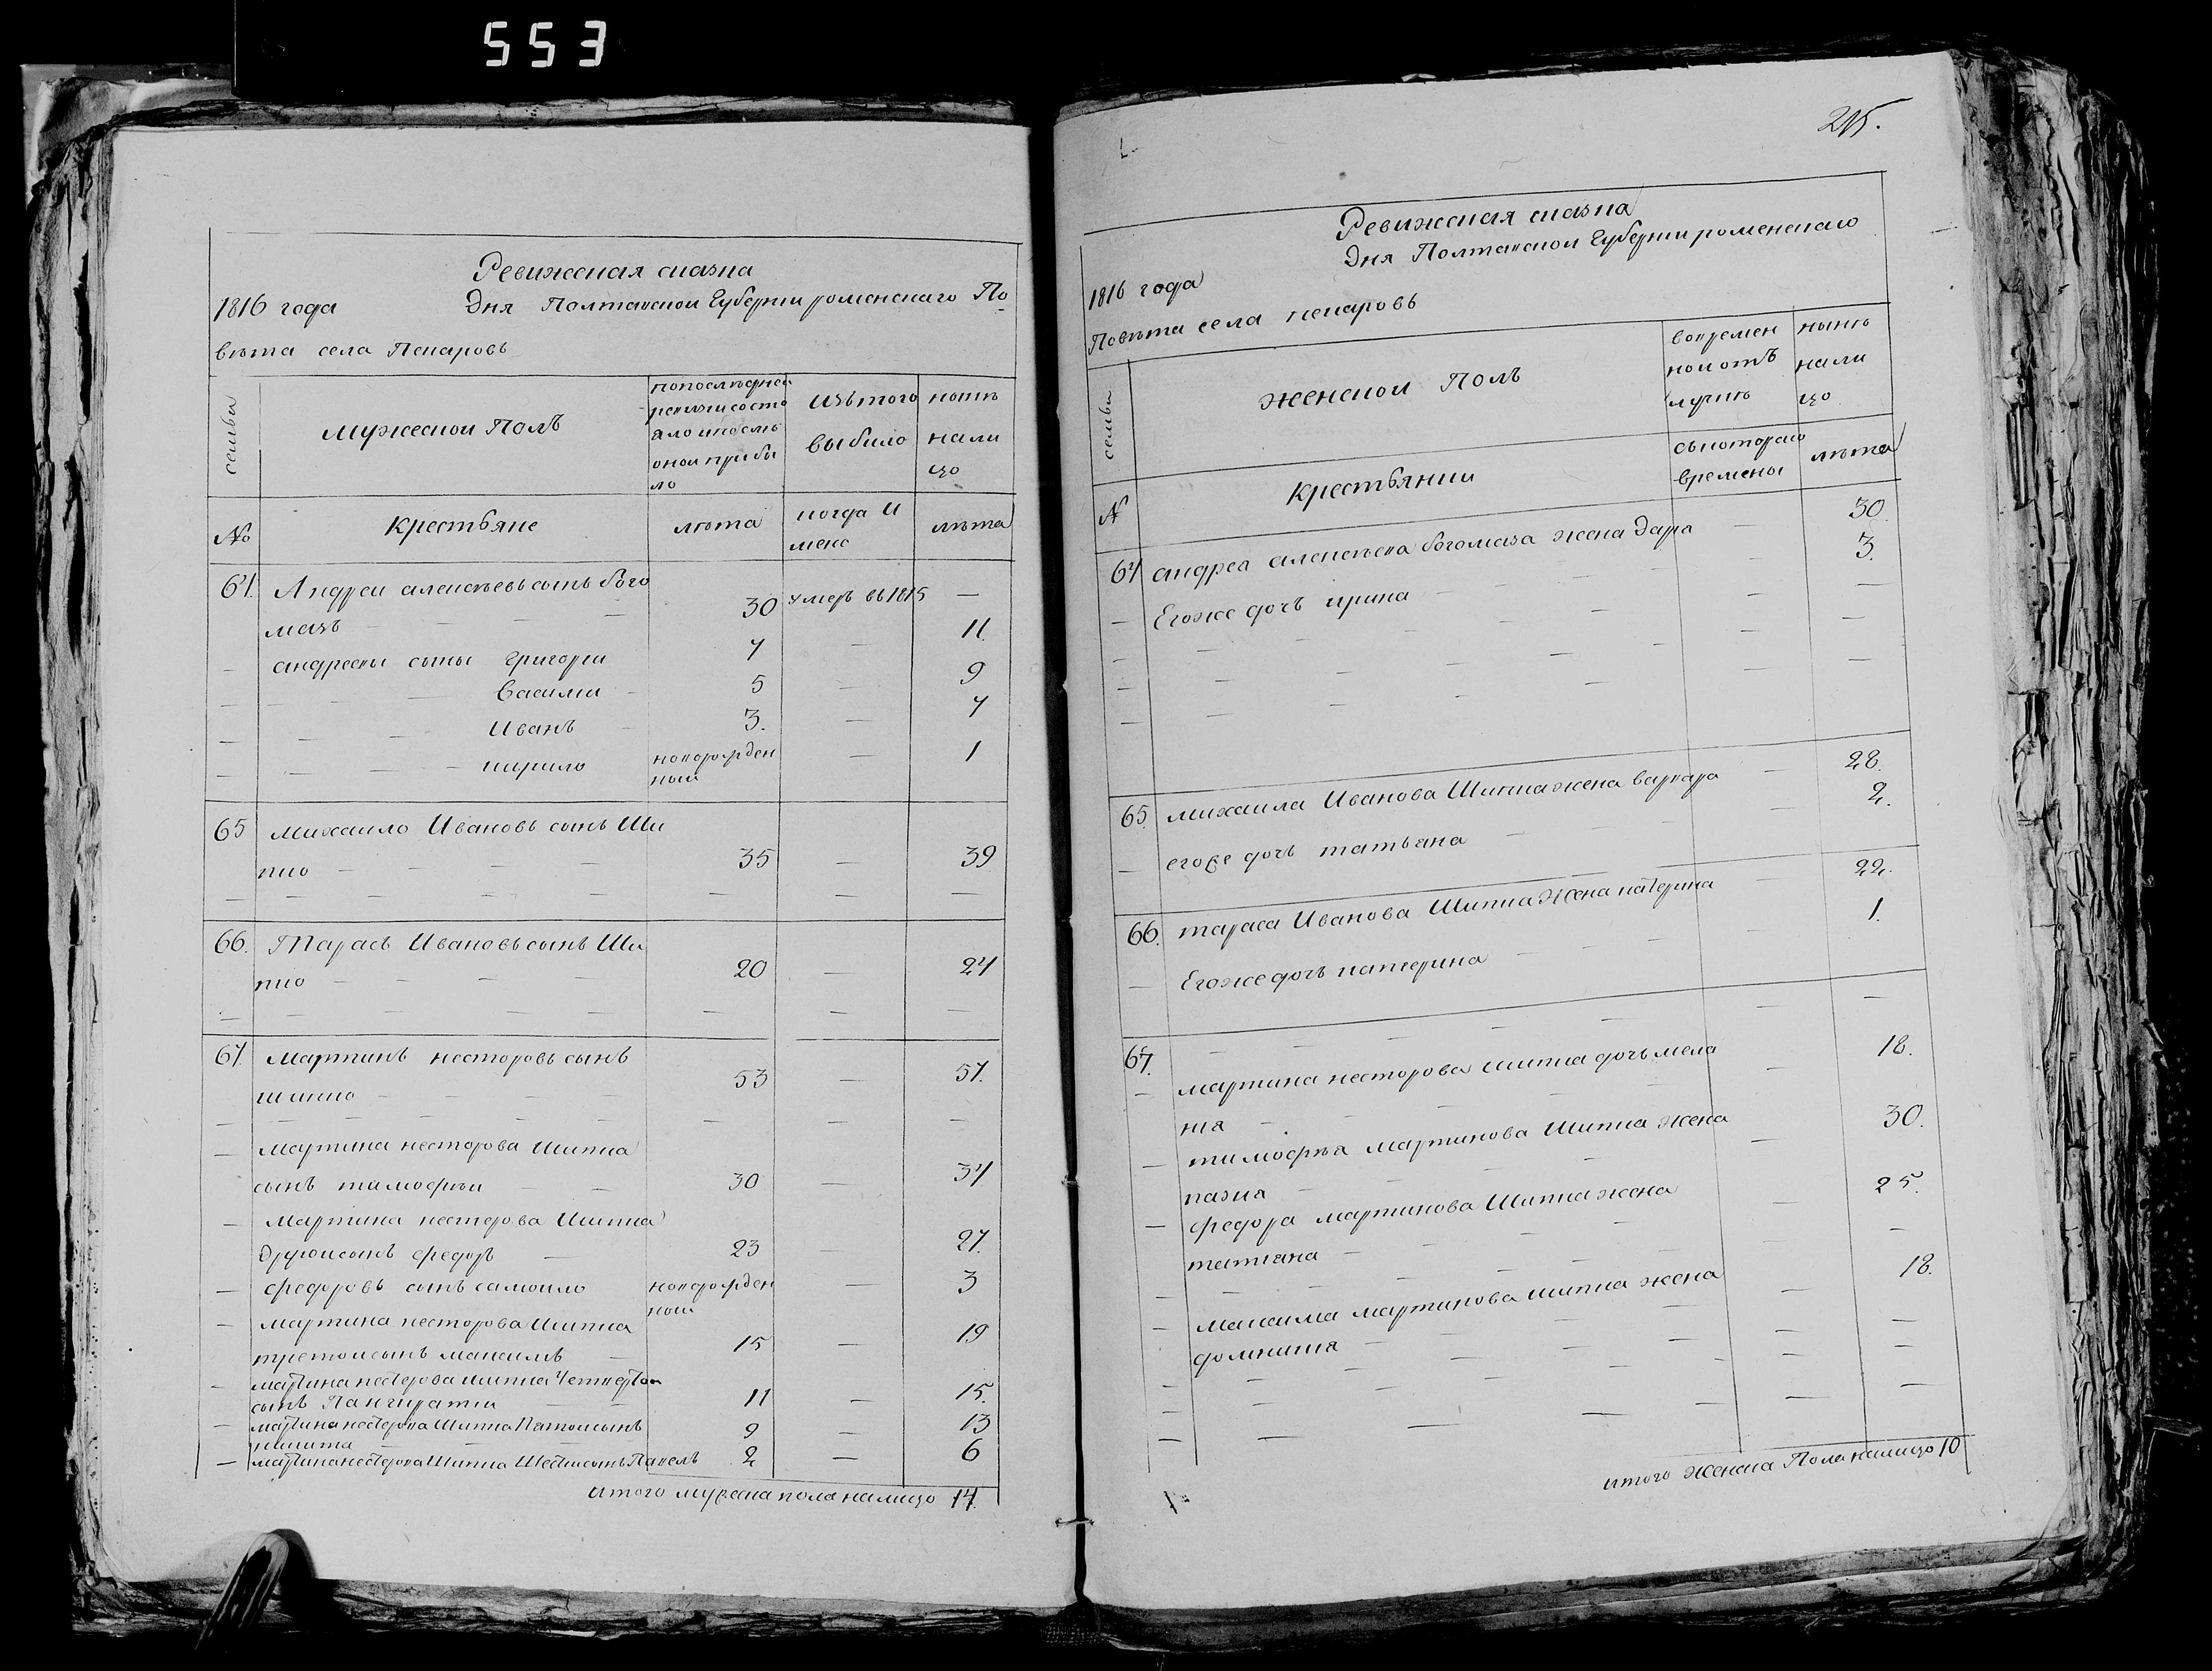 553
Ревижская сказка
1816 года Дня Полтавской Губернии роменского По-
вѣта села Пекаровъ
семьи
мужеской Полъ
попоследней
ревизии состо
яло и после
оной прибы
ло
изътого
выбило
нынѣ
нали
цо
№
Крестьяне
лѣта
когда И
менo
лѣта
64. Андрей алексѣевъ сынъ бого
мазъ 30 умеръ въ 1815 —
андреевы сыны григорий 7 — 11.
Василий 5 — 9
Иванъ 3. — 7
кирило новорожден — 1
ный
65 михаило Ивановъ сынъ Ши
пко 35 — 39
66. Тарасъ Ивановъ сынъ Ши
пко 20 — 24
67. мартинъ несторовъ сынъ
шипко 53 — 57.
мартина несторова Шипка
сынъ тимофѣй 30 — 34
мартина нестерова Шипка
другой сынъ федоръ 23 27.
федоровъ сынъ самоило новорожден — 3
ный
мартина несторова Шипка
третой сынъ максимъ 15 — 19
мартина нестерова шипка Четвертой
сынъ Панкратий 11 — 15.
мартина нестерова Шипка Пятой сынъ
никита 9 — 13
мартина нестерова Шипка Шестой сынъ Павелъ 2 — 6
итого мужеска пола налицо 14.
215.
Ревижская сказка
1816 года Дня Полтавской Губернии роменского
Повѣта села пекаровъ
семьи
женской Полъ
вовремен
ной отъ
лучкѣ
нынѣ
нали
цо
№
Крестьянки
скотораго
времены
лѣта
64 андрея алексѣева богомаза жена Дара — 30.
Егоже дочъ ирина — 3.
65. михаила Иванова Шипка жена варвара — 28.
егоже дочъ татьяна 2.
66. тараса Иванова Шипка Жена катерина — 22.
Егоже дочъ катерина 1.
67.
мартина несторова шипка дочъ мела 18.
ния
тимофѣя мартинова Шипка жена 30.
пазия
федора мартинова Шипка жена 25.
татияна
максима мартинова шипка жена 18.
домникия
итого женска Пола налицо 10